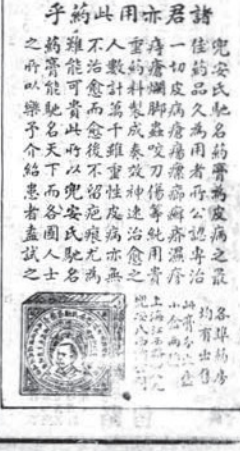 諸君亦用此葯乎
兜安氏名葯膏為皮病之最
佳葯品久為用者所公認專治
一切皮病瘡瘍癬疥濕疹
痔瘡爛脚蟲咬刀傷等純用貴
重葯料製成奏效神速治愈之
人數計萬千雖重性皮病亦無
不治愈而愈後不留疤痕尤為
難能可貴此所以兜安氏馳名
葯膏能馳名天下而各國人士
之所以樂予介紹患者盍試之
各埠葯房
均有出售
上海江西路
兜安氏西葯公司